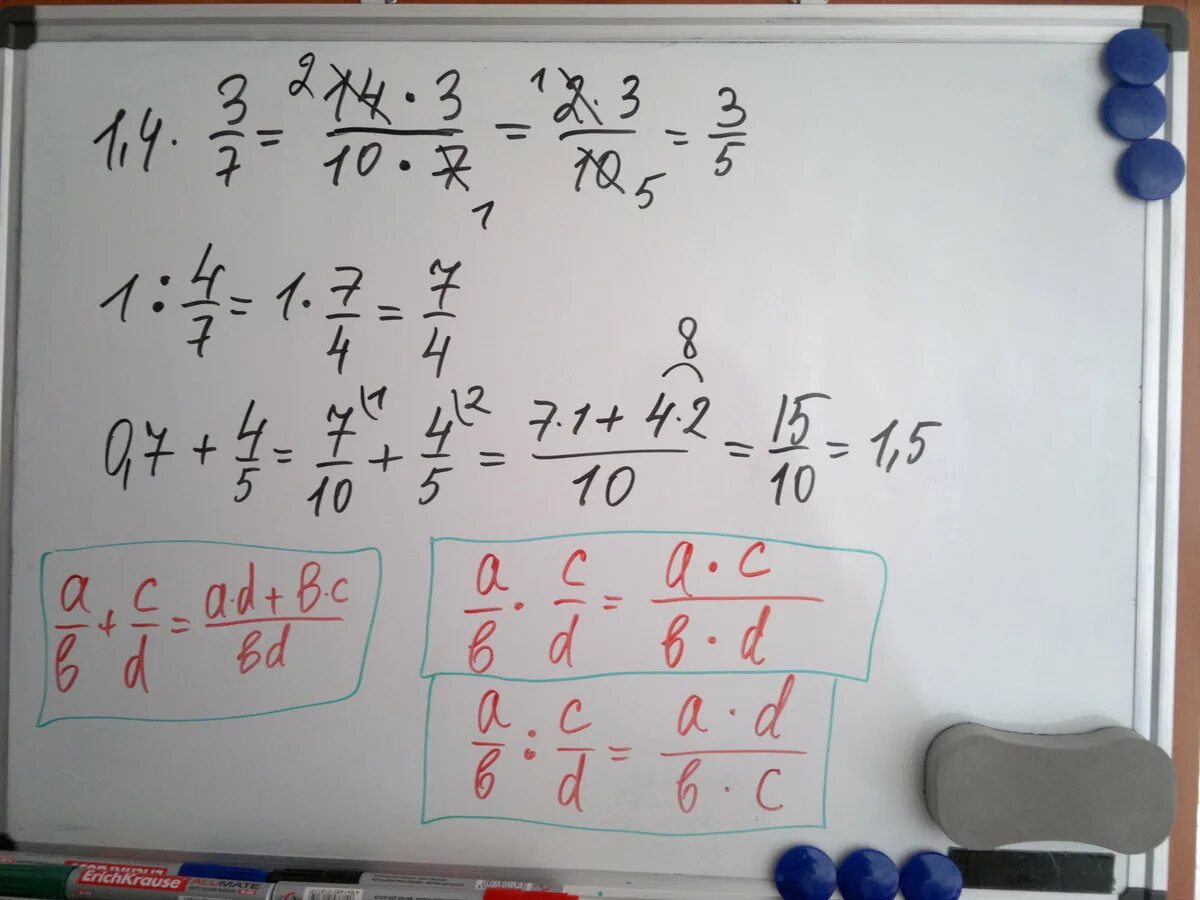 1,4 · 3/7 = 2 14 · 3 / 10 · 7 1 = 1 2 · 3 / 10 5 = 3/5
1 : 4/7 = 1 · 7/4 = 7/4
0,7 + 4/5 = 7/10 \1 + 4/5 \2 = 7·1 + 4·2 / 10 = 15/10 = 1,5
8
a/в + c/d = a·d + в·c / вd
a/в · c/d = a · c / в · d
a/в : c/d = a · d / в · c
ErichKrause
ALUMATE